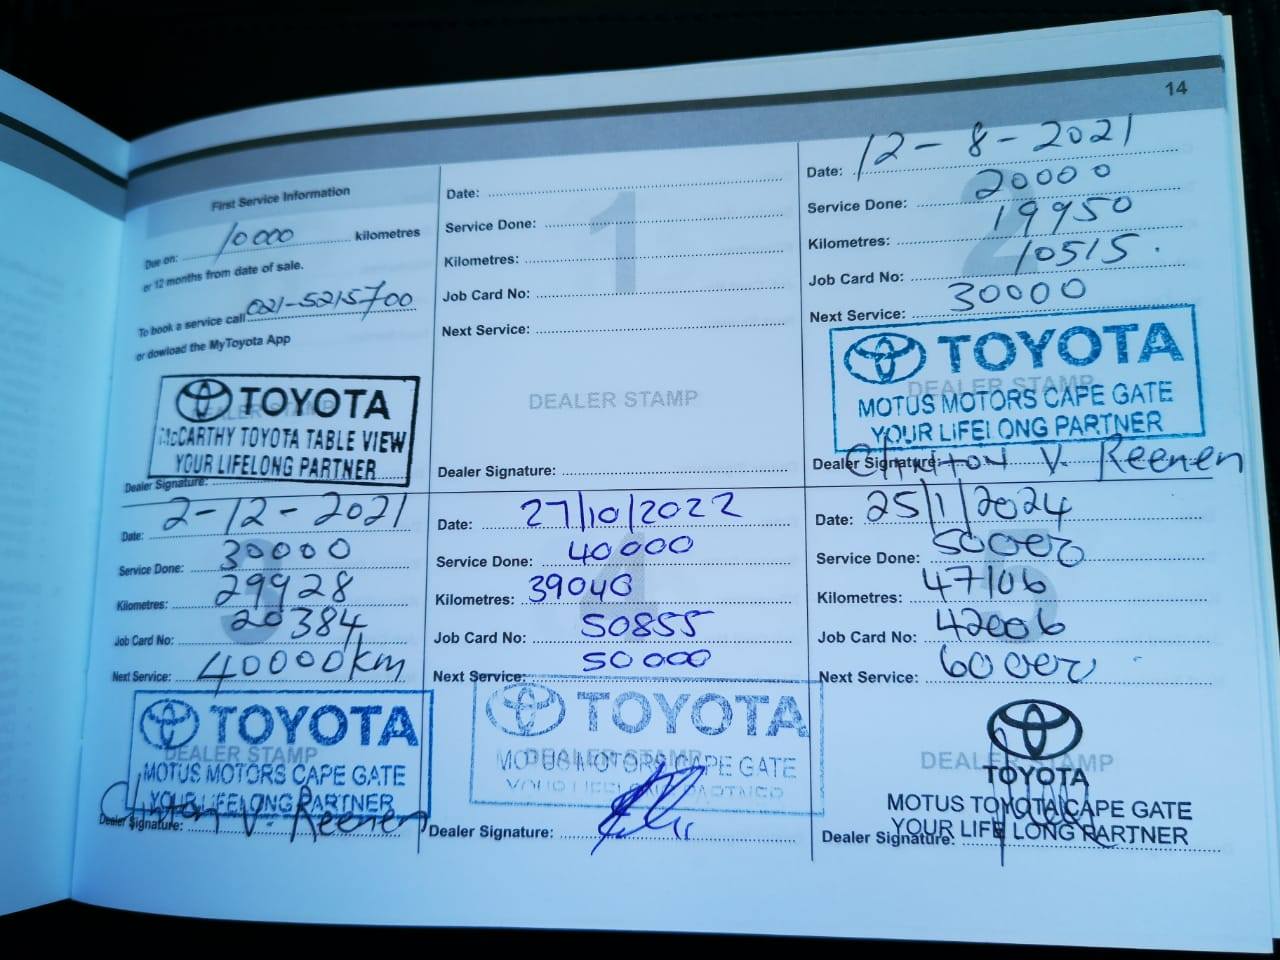 14
First Service Information
Due on: 10 000 kilometres
or 12 months from date of sale.
To book a service call 021-5215700
or dowload the MyToyota App
DEALER STAMP
TOYOTA
McCARTHY TOYOTA TABLE VIEW
YOUR LIFELONG PARTNER
Dealer Signature:
1
Date:
Service Done:
Kilometres:
Job Card No:
Next Service:
DEALER STAMP
Dealer Signature:
2
Date: 12-8-2021
Service Done: 20000
Kilometres: 19950
Job Card No: 10515.
Next Service: 30000
DEALER STAMP
TOYOTA
MOTUS MOTORS CAPE GATE
YOUR LIFELONG PARTNER
Dealer Signature: Clinton V. Reenen
3
Date: 2-12-2021
Service Done: 30000
Kilometres: 29928
Job Card No: 20384
Next Service: 40000km
DEALER STAMP
TOYOTA
MOTUS MOTORS CAPE GATE
YOUR LIFELONG PARTNER
Dealer Signature: Clinton V. Reenen
4
Date: 27/10/2022
Service Done: 40000
Kilometres: 39040
Job Card No: 50855
Next Service: 50000
DEALER STAMP
TOYOTA
MOTUS MOTORS CAPE GATE
YOUR LIFELONG PARTNER
Dealer Signature:
5
Date: 25/1/2024
Service Done: 50000
Kilometres: 47106
Job Card No: 42006
Next Service: 60000
DEALER STAMP
TOYOTA
MOTUS TOYOTA CAPE GATE
YOUR LIFE LONG PARTNER
Dealer Signature: